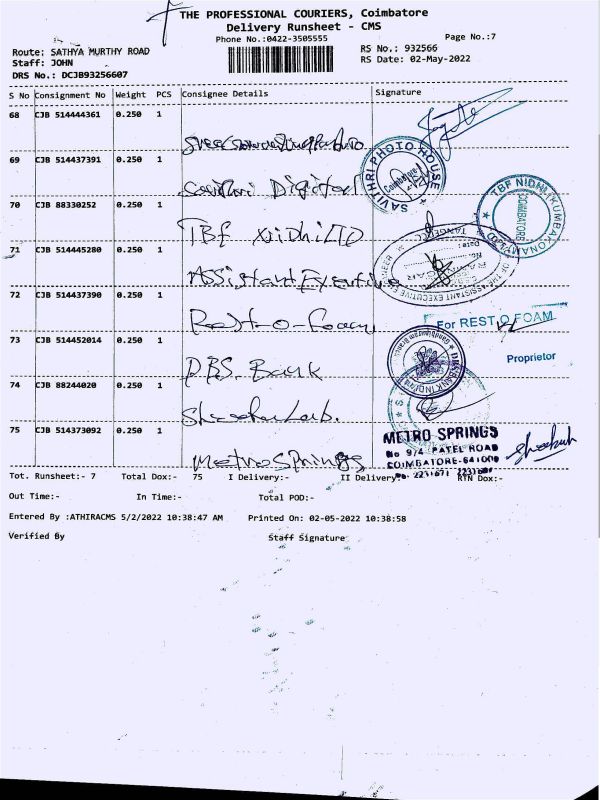 THE PROFESSIONAL COURIERS, Coimbatore
Delivery Runsheet - CMS
Phone No.:0422-3505555
Page No.:7
Route: SATHYA MURTHY ROAD
RS No.: 932566
Staff: JOHN
RS Date: 02-May-2022
DRS No.: DCJB93256607
S No Consignment No Weight PCS Consignee Details Signature
68 CJB 514444361 0.250 1
69 CJB 514437391 0.250 1
Savithri Digital
SAVITHRI PHOTO HOUSE
Coimbatore
70 CJB 88330252 0.250 1
TBF NidhiLTD
TBF NIDHI KUMBAKONAM
COIMBATORE
71 CJB 514445280 0.250 1
Assistant Executive
OF THE ASSISTANT EXECUTIVE ENGINEER
TANGEDCO
No.
Date:
72 CJB 514437390 0.250 1
Rest-O-Foam
For REST O FOAM
Proprietor
73 CJB 514452014 0.250 1
DBS Bank
DBS BANK INDIA
74 CJB 88244020 0.250 1
75 CJB 514373092 0.250 1
Metro Springs
METRO SPRINGS
No 9/4 PATEL ROAD
COIMBATORE-641009
Tot. Runsheet:- 7 Total Dox:- 75 I Delivery:- II Delivery RTN Dox:-
Out Time:- In Time:- Total POD:-
Entered By :ATHIRACMS 5/2/2022 10:38:47 AM Printed On: 02-05-2022 10:38:58
Verified By Staff Signature